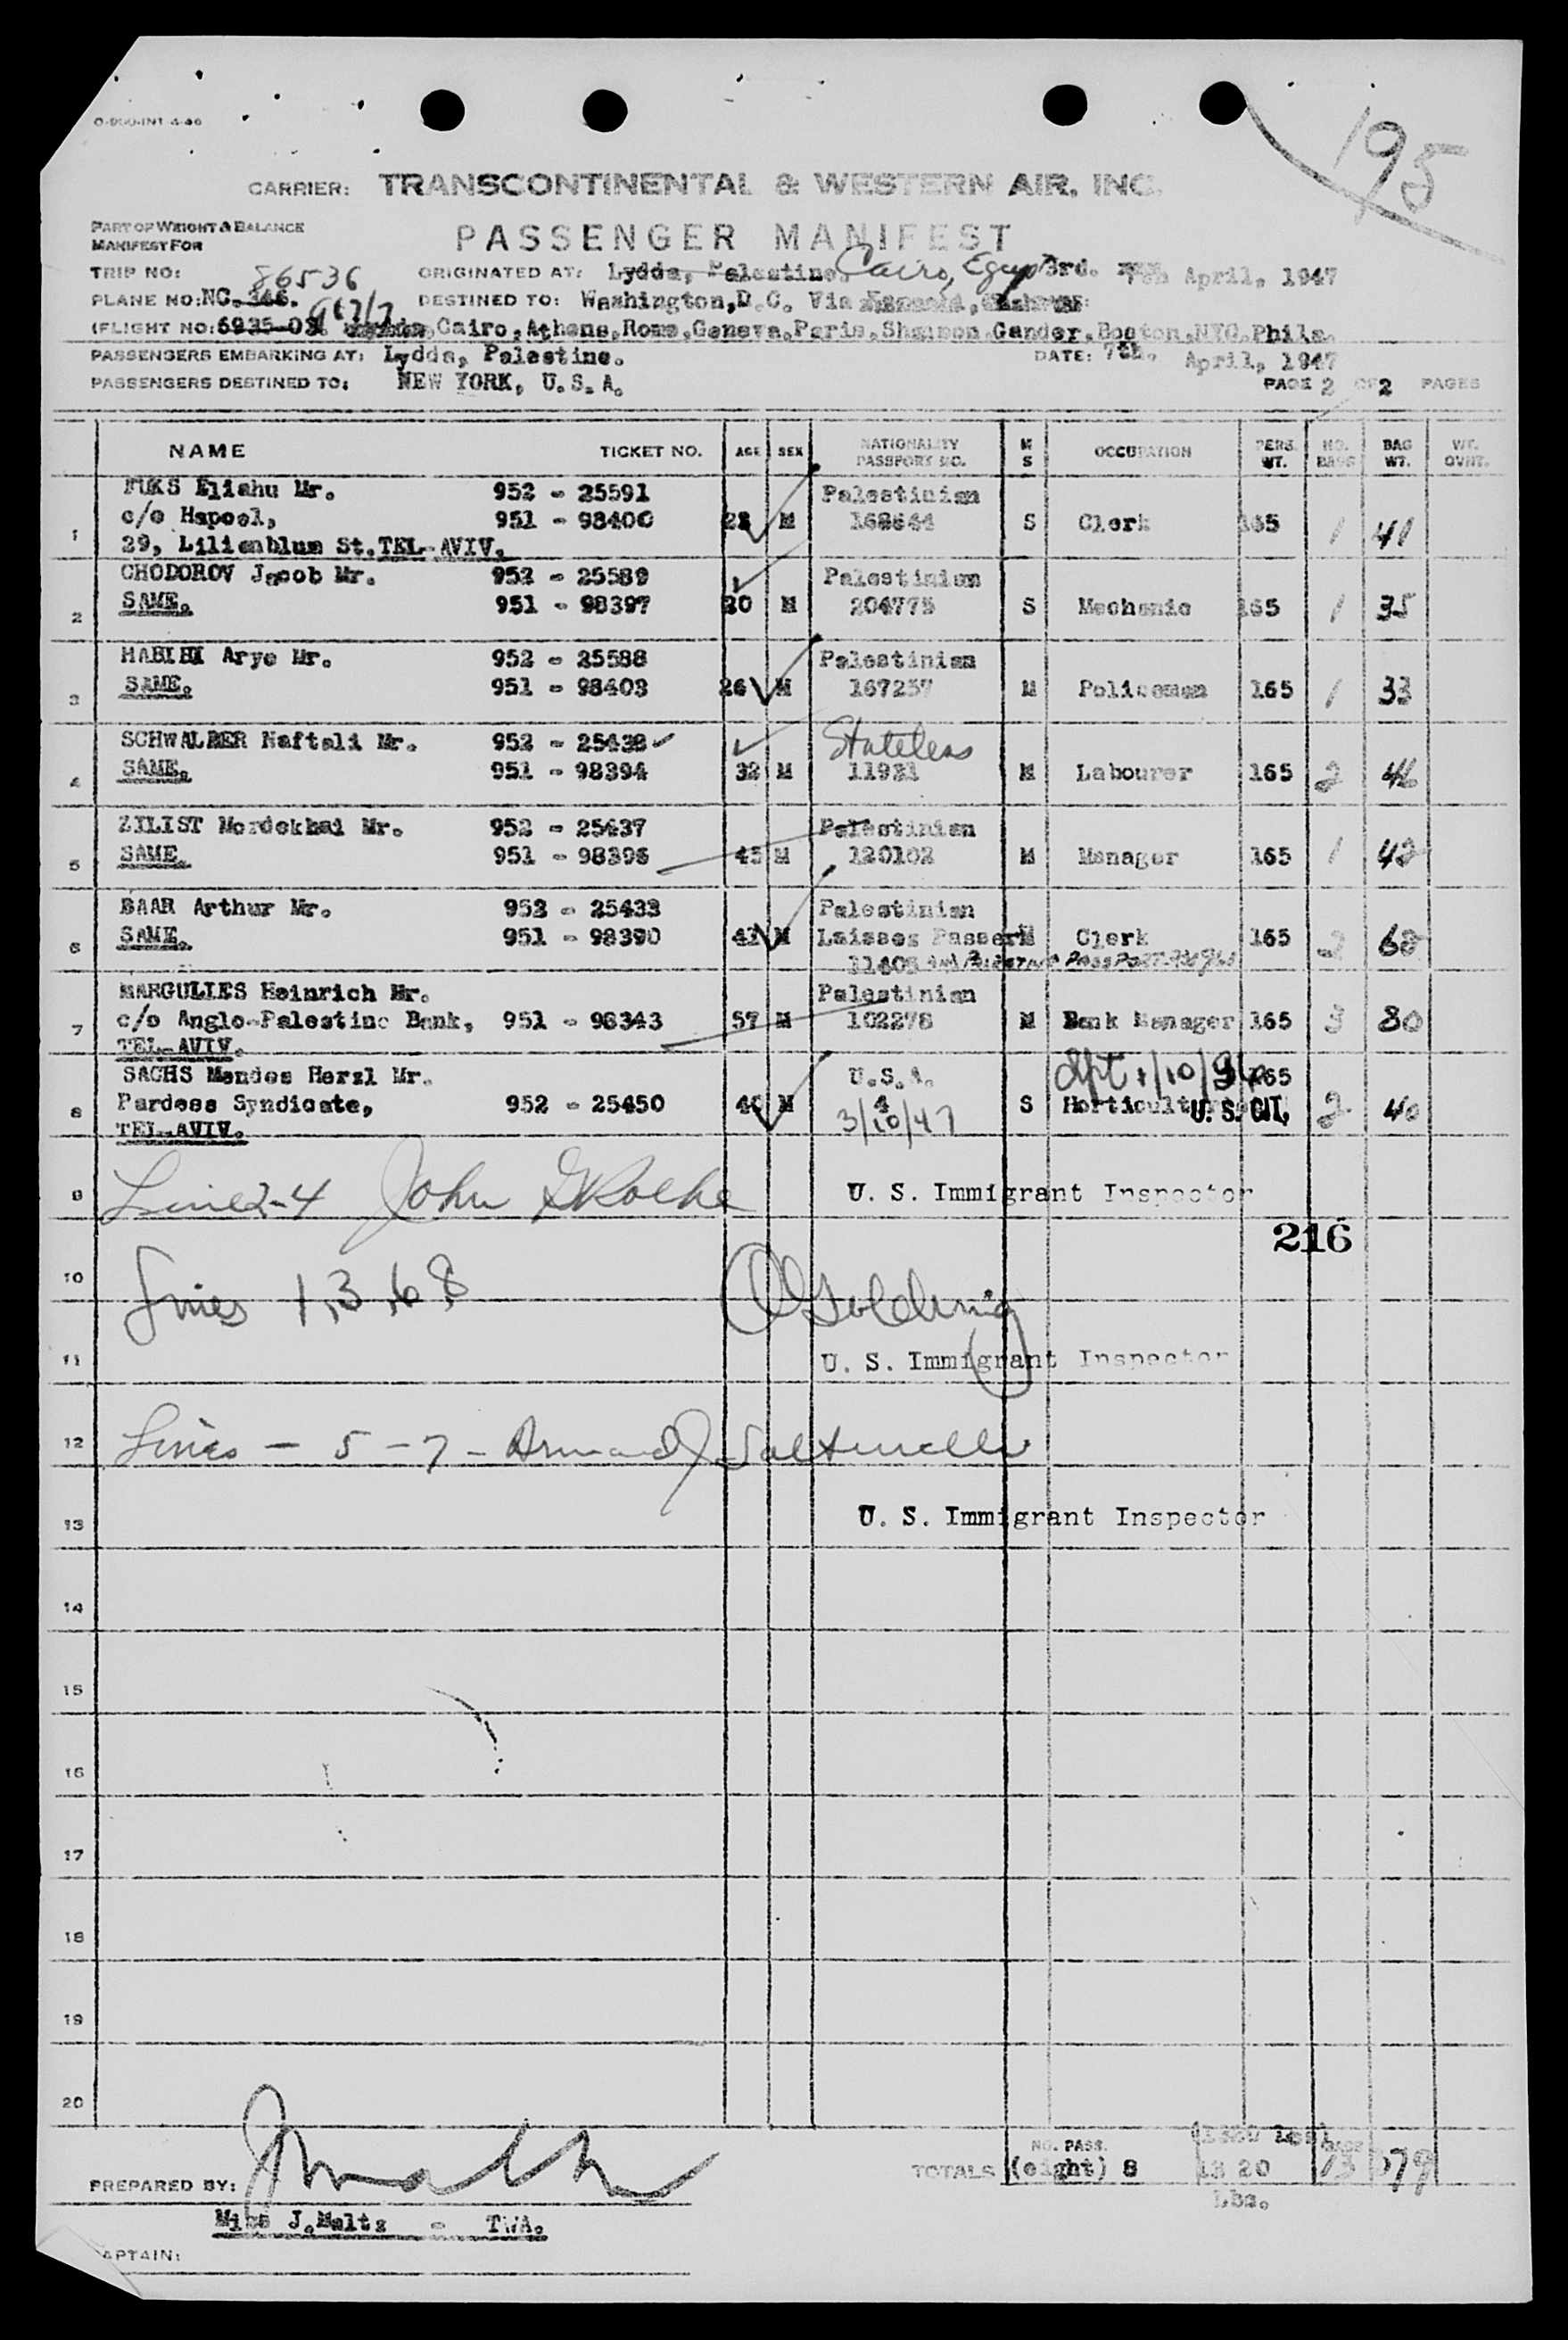 O-900-INT 4-46
195
CARRIER: TRANSCONTINENTAL & WESTERN AIR, INC.
PART OF WEIGHT & BALANCE
MANIFEST FOR
PASSENGER MANIFEST
TRIP NO: 86536 ORIGINATED AT: Lydda, Palestine, Cairo, Egypt 3rd. April, 1947
PLANE NO: NC. DESTINED TO: Washington, D.C. Via
(FLIGHT NO: Cairo, Athens, Rome, Geneva, Paris, Shannon Gander, Boston, NYC. Phila.
PASSENGERS EMBARKING AT: Lydda, Palestine. DATE: 7th. April, 1947
PASSENGERS DESTINED TO: NEW YORK, U.S.A. PAGE 2 OF 2 PAGES
NAME TICKET NO. AGE SEX NATIONALITY PASSPORT NO. M S OCCUPATION PERS. WT. NO. BAGS BAG WT. WT. OVHT.
FUKS Eliahu Mr. 952 - 25591 Palestinian
1 c/o Hapoel, 951 - 98400 28 M 168644 S Clerk 165 1 41
29, Lilienblum St. TEL-AVIV.
CHODOROV Jacob Mr. 952 - 25589 Palestinian
2 SAME. 951 - 98397 20 M 204775 S Mechanic 165 1 35
HABIBI Arye Mr. 952 - 25588 Palestinian
3 SAME. 951 - 98403 26 M 167257 M Policeman 165 1 33
SCHWALBER Naftali Mr. 952 - 25438 Stateless
4 SAME. 951 - 98394 32 M 11931 M Labourer 165 2 46
ZILIST Mordekhai Mr. 952 - 25437 Palestinian
5 SAME. 951 - 98396 45 M 120102 M Manager 165 1 42
BAAR Arthur Mr. 952 - 25433 Palestinian
6 SAME. 951 - 98390 M Laisses Passer M Clerk 165 2 62
MARGULIES Heinrich Mr. Palestinian
7 c/o Anglo-Palestine Bank, 951 - 98343 57 M 102278 M Bank Manager 165 3 80
TEL-AVIV.
SACHS Mendes Herzl Mr. U.S.A. 165
8 Pardess Syndicate, 952 - 25450 M 4 S U.S. CIT. 2 40
TEL-AVIV. 3/10/47
9 Line 2-4 John U. S. Immigrant Inspector
216
10 Lines 1,3,6,8 Goldring
11 U. S. Immigrant Inspector
12 Lines - 5 - 7 - Armand J
13 U. S. Immigrant Inspector
14
15
16
17
18
19
20
NO. PASS.
TOTALS (eight) 8 13 20 13 379
Lbs.
PREPARED BY:
Miss J. Maltz - TWA.
APTAIN: